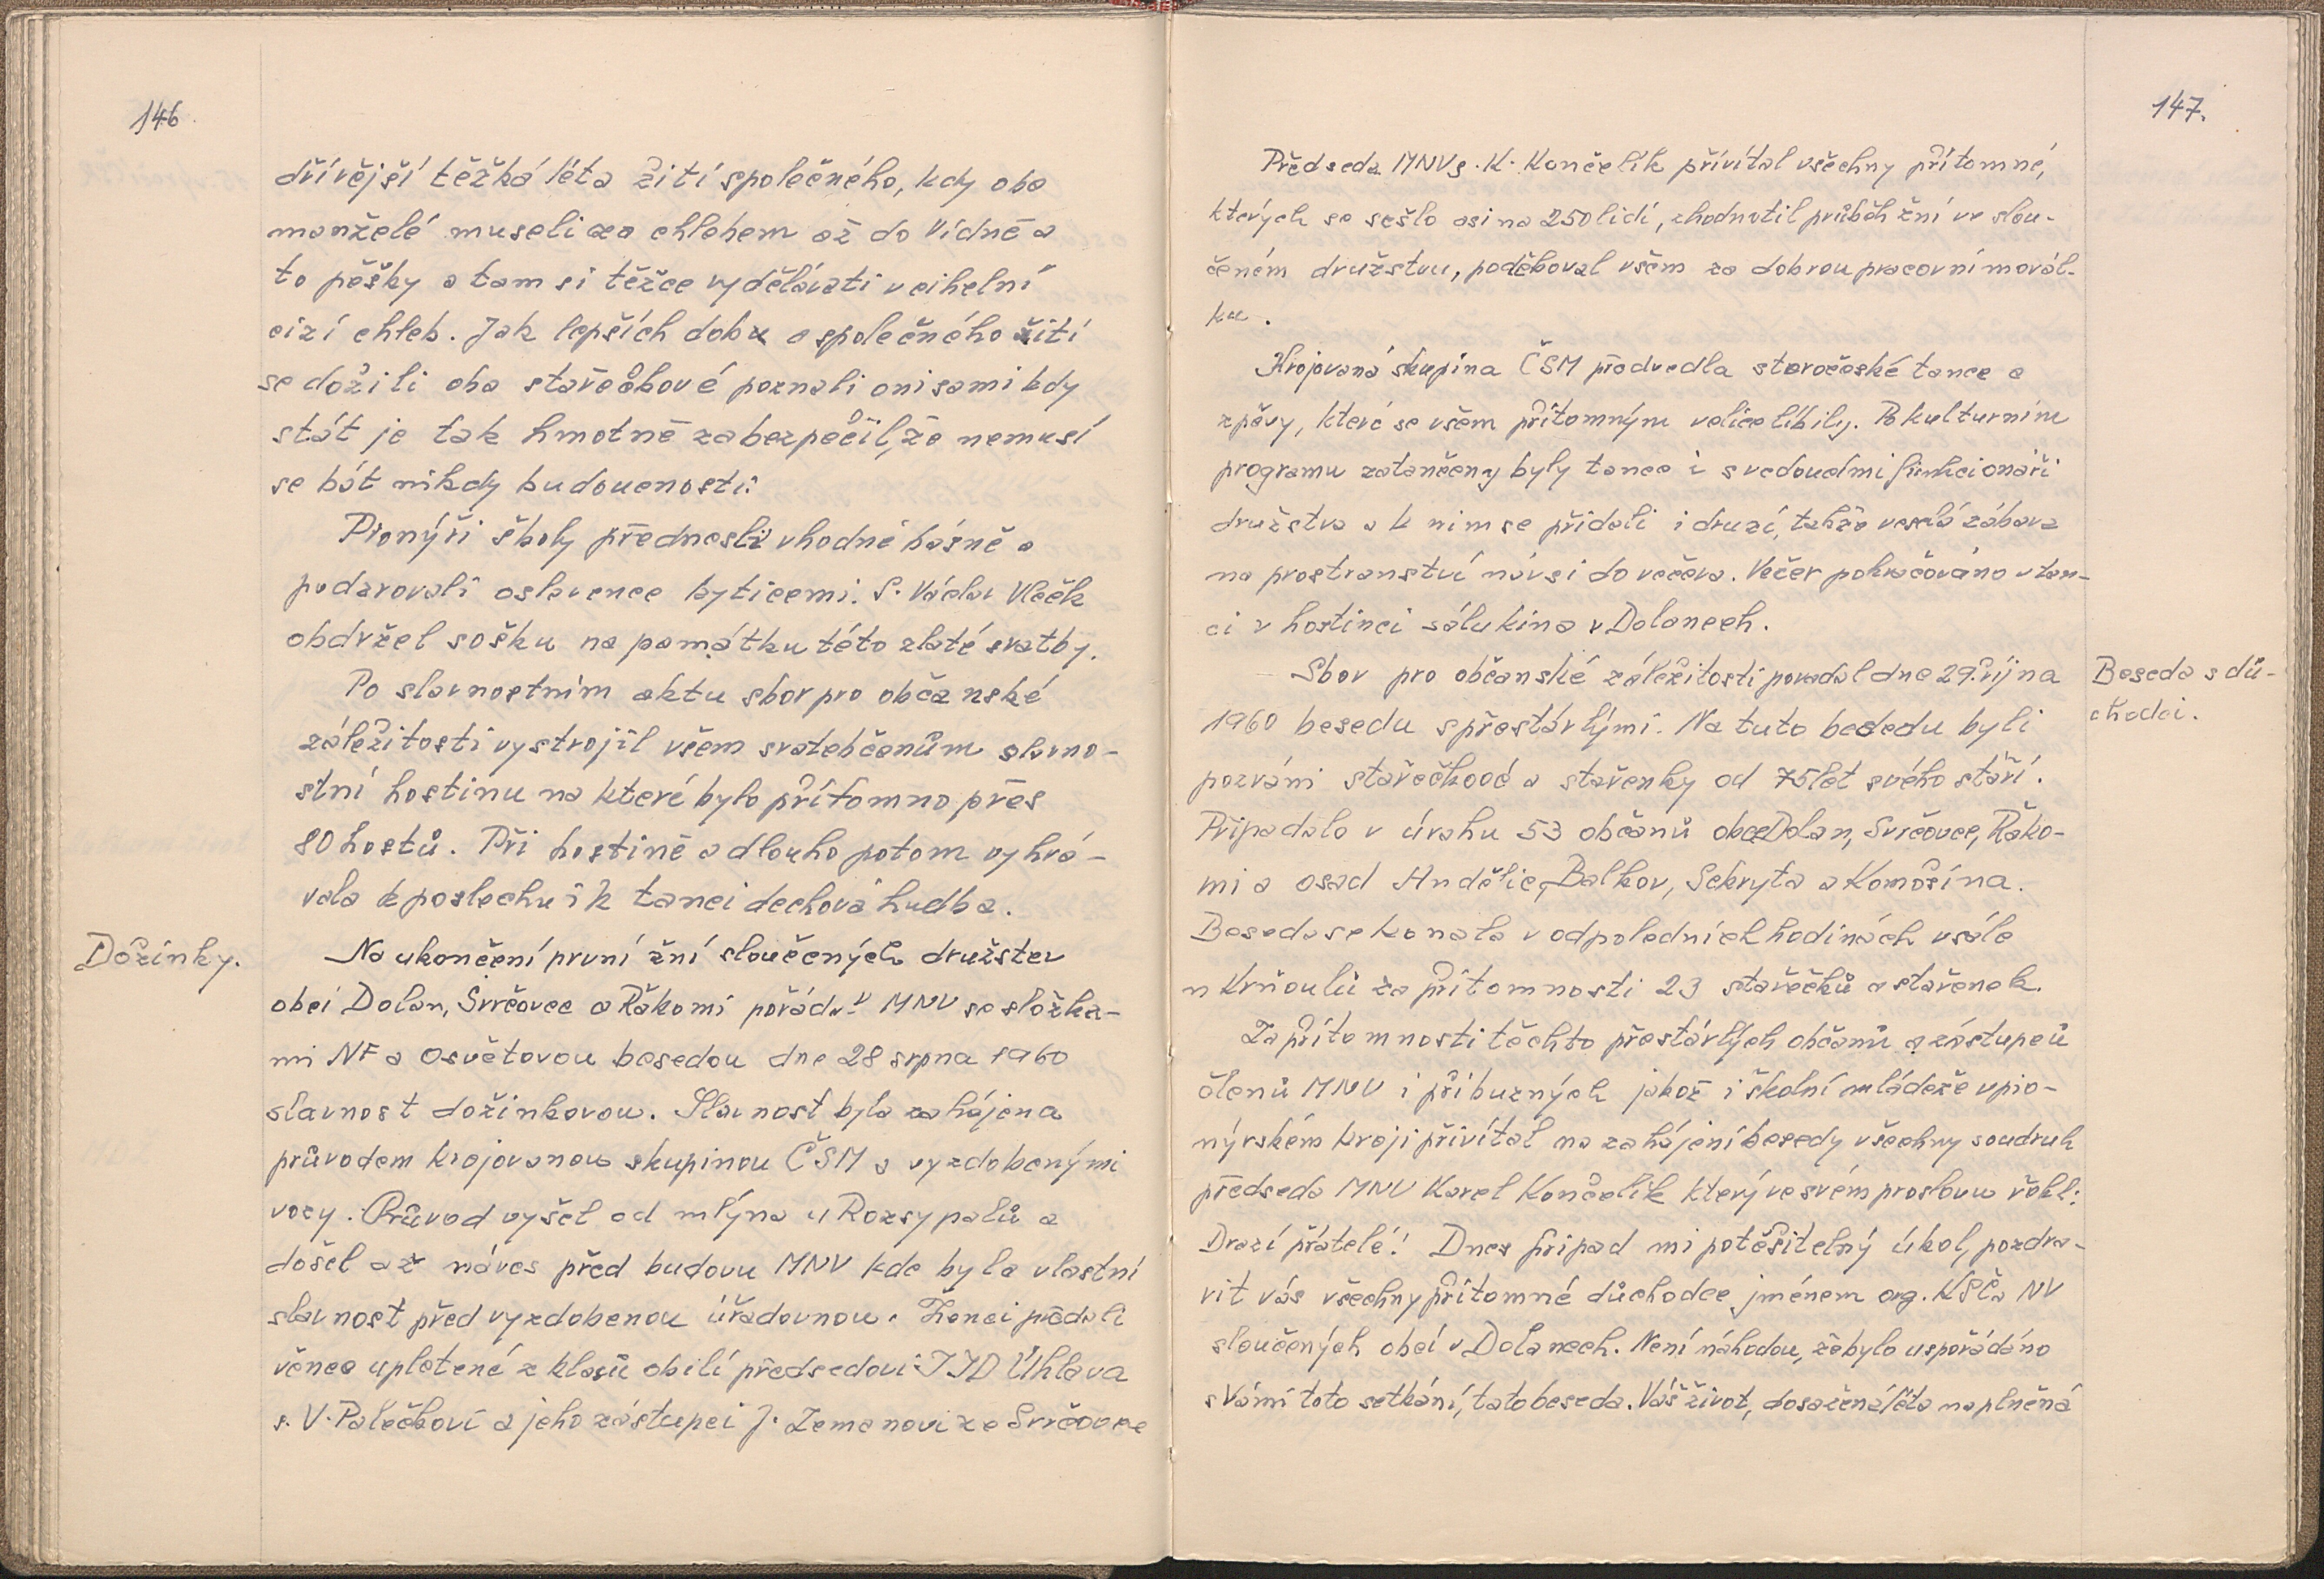 146
dřívější těžká léta žití společného, kdy oba
manželé museli za chlebem až do Vídně a
to pěšky a tam si těžce vydělávati v cihelní
cizí chleb. Jak lepších dob a společného žití
se dožili oba stařečkové poznali oni sami kdy
stát je tak hmotně zabezpečil, že nemusí
se bát nikdy budoucnosti.
Pionýři školy přednesli vhodné básně a
podarovali oslavence kyticemi. S. Václav Vlček
obdržel sošku na památku této zlaté svatby.
Po slavnostním aktu sbor pro občanské
záležitosti vystrojil všem svatebčanům slavno-
stní hostinu na které bylo přítomno přes
80 hostů. Při hostině a dlouho potom vyhrá-
vala k poslechu i k tanci dechová hudba.
Dožínky.
Na ukončení první žní sloučených družstev
obcí Dolan, Svrčovec a Řákomí pořádal MNV se složka-
mi NF a Osvětovou besedou dne 28 srpna 1960
slavnost dožínkovou. Slavnost byla zahájena
průvodem krojovanou skupinou ČSM a vyzdobenými
vozy. Průvod vyšel od mlýna u Rozsypalů a
došel až náves před budovu MNV kde byla vlastní
slavnost před vyzdobenou úřadovnou. Ženci předali
věnce upletené z klasů obilí předsedovi JZD Úhlava
s. V. Palečkovi a jeho zástupci J. Zemanovi ze Svrčovce
147.
Předseda MNV s. K. Končelík přivítal všechny přítomné,
kterých se sešlo asi na 250 lidí, zhodnotil průběh žní ve slou-
čeném družstvu, poděkoval všem za dobrou pracovní morál-
ku.
Krojovaná skupina ČSM předvedla staročeské tance a
zpěvy, které se všem přítomným velice líbily. Po kulturním
programu zatančeny byly tance i s vedoucími funkcionáři
družstva a k nim se přidali i druzí, takže veselá zábava
na prostranství návsi do večera. Večer pokračováno v tan-
ci v hostinci sálu kina v Dolanech.
Beseda s dů-
chodci.
Sbor pro občanské záležitosti pořádal dne 29. října
1960 besedu s přestárlými. Na tuto bededu byli
pozváni stařečkové a stařenky od 75 let svého stáří.
Připadalo v úvahu 53 občanů obce Dolan, Svrčovec, Řáko-
mi a osad Andělic, Balkov, Sekryta a Komošína.
Beseda se konala v odpoledních hodinách v sále
u Krňoulů za přítomnosti 23 stařečků a stařenek.
Za přítomnosti těchto přestárlých občanů a zástupců
členů MNV i příbuzných jakož i školní mládeže v pio-
nýrském kroji přivítal na zahájení besedy všechny soudruh
předseda MNV Karel Končelík který ve svém proslovu řekl:
Drazí přátelé! Dnes připad mi potěšitelný úkol, pozdra-
vit vás všechny přítomné důchodce jménem org. KSČ a NV
sloučených obcí v Dolanech. Není náhodou, že bylo uspořádáno
s Vámi toto setkání, tato beseda. Váš život, dosažená léta naplněná